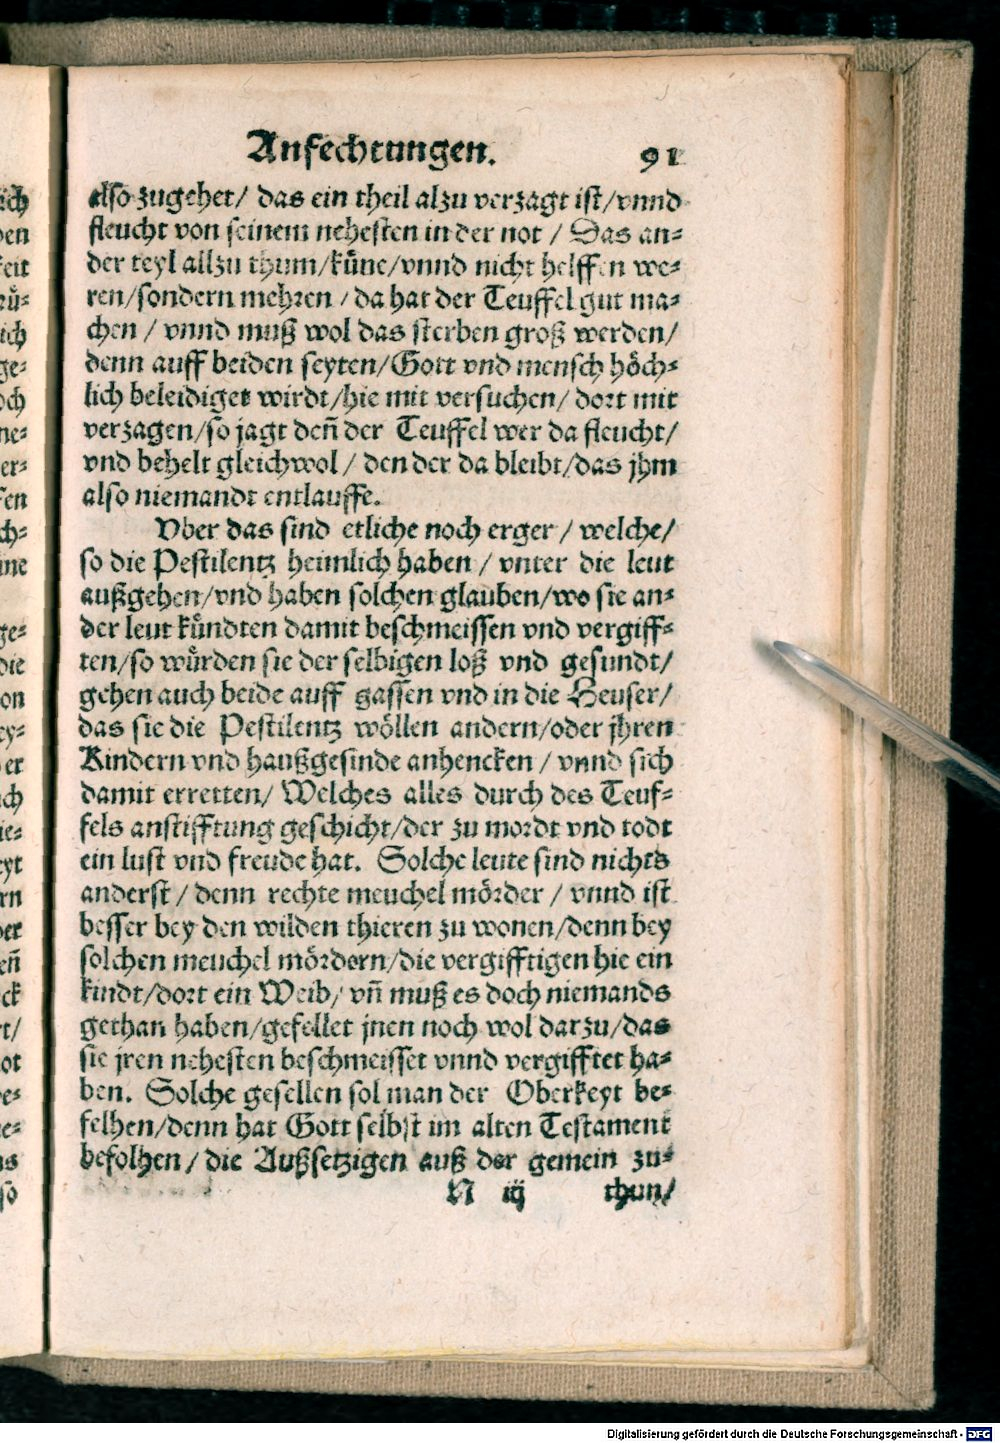 Anfechtungen. 91
also zugehet/ das ein theil alzu verzagt ist/vnnd
fleucht von seinem nehesten in der not / Das an⸗
der teyl allzu thum/küne/vnnd nicht helffen we⸗
ren/sondern mehren / da hat der Teuffel gut ma⸗
chen / vnnd muß wol das sterben groß werden/
denn auff beiden seyten/Gott vnd mensch höch⸗
lich beleidiget wirdt/hie mit versuchen/ dort mit
verzagen/so jagt deñ der Teuffel wer da fleucht/
vnd behelt gleichwol / den der da bleibt/das jhm
also niemandt entlauffe.
Vber das sind etliche noch erger / welche/
so die Pestilentz heimlich haben / vnter die leut
außgehen/vnd haben solchen glauben/wo sie an⸗
der leut kündten damit beschmeissen vnd vergiff⸗
ten/so würden sie der selbigen loß vnd gesundt/
gehen auch beide auff gassen vnd in die Heuser/
das sie die Pestilentz wöllen andern/oder jhren
Kindern vnd haußgesinde anhencken / vnnd sich
damit erretten/ Welches alles durch des Teuf⸗
fels anstifftung geschicht/der zu mordt vnd todt
ein lust vnd freude hat. Solche leute sind nichts
anderst / denn rechte meuchel mörder / vnnd ist
besser bey den wilden thieren zu wonen/denn bey
solchen meuchel mördern/die vergifftigen hie ein
kindt/dort ein Weib/ vñ muß es doch niemands
gethan haben/gefellet jnen noch wol darzu/das
sie jren nehesten beschmeisset vnnd vergifftet ha⸗
ben. Solche gesellen sol man der Oberkeyt be⸗
felhen/denn hat Gott selbst im alten Testament
befolhen / die Außsetzigen auß der gemein zu⸗
N iij thun/
Digitalisierung gefördert durch die Deutsche Forschungsgemeinschaft - DFG